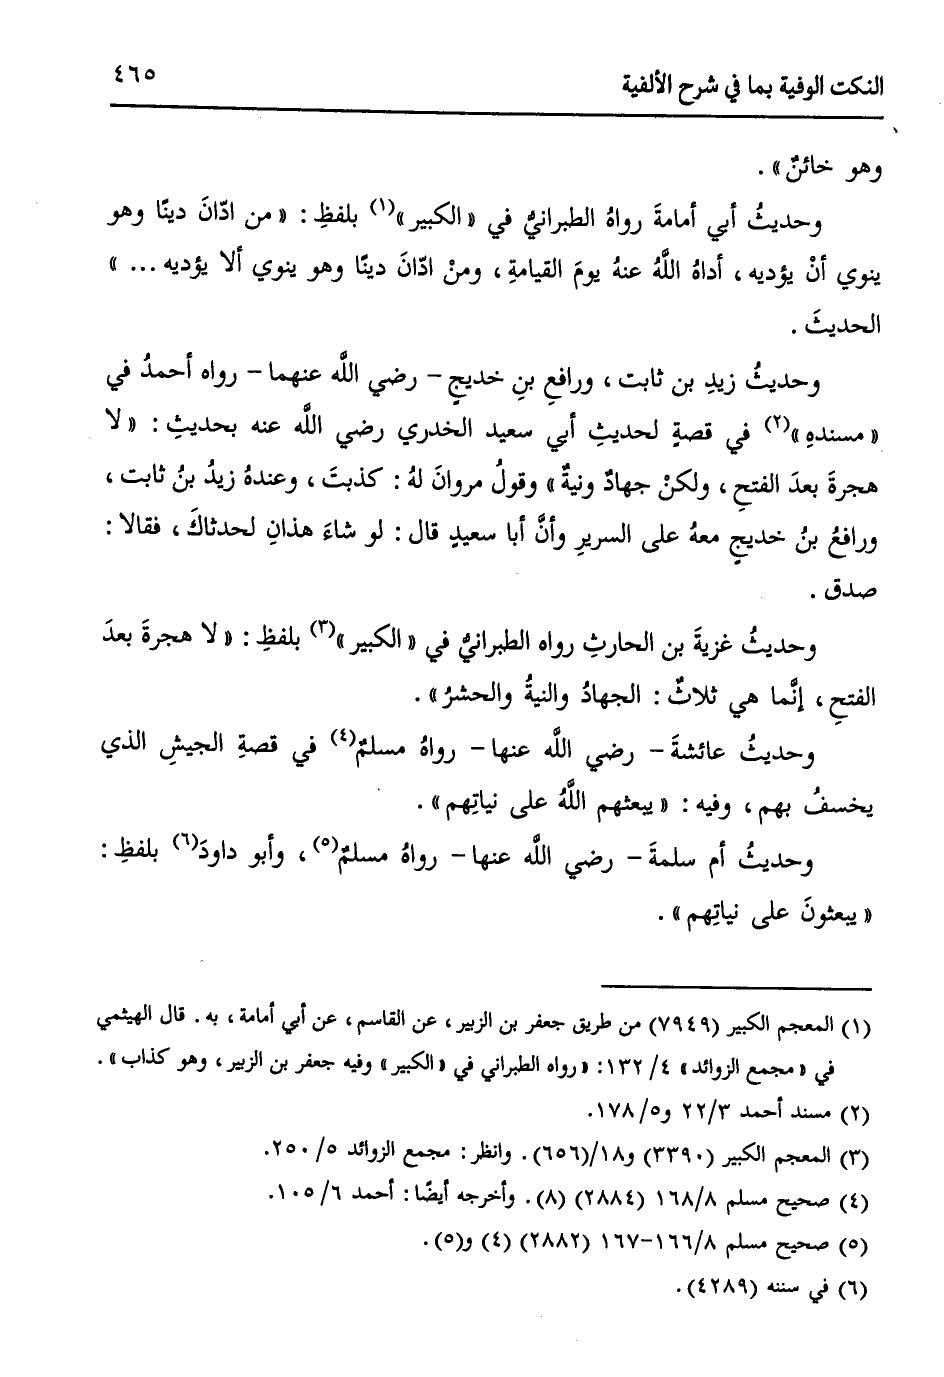 النكت الوفية بما في شرح الألفية ٤٦٥
وهو خائنٌ» .
وحديثُ أبي أمامةَ رواهُ الطبرانيُّ في «الكبير»(١) بلفظِ : «من ادّانَ دينًا وهو
ينوي أنْ يؤديه ، أداهُ اللَّهُ عنهُ يومَ القيامةِ ، ومنْ ادّانَ دينًا وهو ينوي ألا يؤديه ... »
الحديثَ .
وحديثُ زيدِ بن ثابت ، ورافعِ بنِ خديجٍ – رضي اللَّه عنهما – رواه أحمدُ في
«مسندهِ»(٢) في قصةٍ لحديثِ أبي سعيد الخدري رضي اللَّه عنه بحديثِ : «لا
هجرةَ بعدَ الفتحِ ، ولكنْ جهادٌ ونيةٌ» وقولُ مروانَ لهُ : كذبتَ ، وعندهُ زيدُ بنُ ثابت ،
ورافعُ بنُ خديجٍ معهُ على السريرِ وأنَّ أبا سعيدٍ قال : لو شاءَ هذانِ لحدثاكَ ، فقالا :
صدق .
وحديثُ غزيةَ بن الحارثِ رواه الطبرانيُّ في «الكبير»(٣) بلفظِ : «لا هجرةَ بعدَ
الفتحِ ، إنَّما هي ثلاثٌ : الجهادُ والنيةُ والحشرُ» .
وحديثُ عائشةَ – رضي اللَّه عنها – رواهُ مسلمٌ(٤) في قصةِ الجيشِ الذي
يخسفُ بهم ، وفيه : «يبعثهم اللَّهُ على نياتِهم» .
وحديثُ أم سلمةَ – رضي اللَّه عنها – رواهُ مسلمٌ(٥) ، وأبو داودَ(٦) بلفظِ :
«يبعثونَ على نياتِهم» .
(١) المعجم الكبير (٧٩٤٩) من طريق جعفر بن الزبير ، عن القاسم ، عن أبي أمامة ، به . قال الهيثمي
في «مجمع الزوائد» ٤/ ١٣٢: «رواه الطبراني في «الكبير» وفيه جعفر بن الزبير ، وهو كذاب» .
(٢) مسند أحمد ٢٢/٣ و٥/ ١٧٨.
(٣) المعجم الكبير (٣٣٩٠) و١٨/(٦٥٦) . وانظر : مجمع الزوائد ٥/ ٢٥٠.
(٤) صحيح مسلم ١٦٨/٨ (٢٨٨٤) (٨) . وأخرجه أيضًا : أحمد ٦/ ١٠٥.
(٥) صحيح مسلم ١٦٦/٨–١٦٧ (٢٨٨٢) (٤) و(٥) .
(٦) في سننه (٤٢٨٩) .